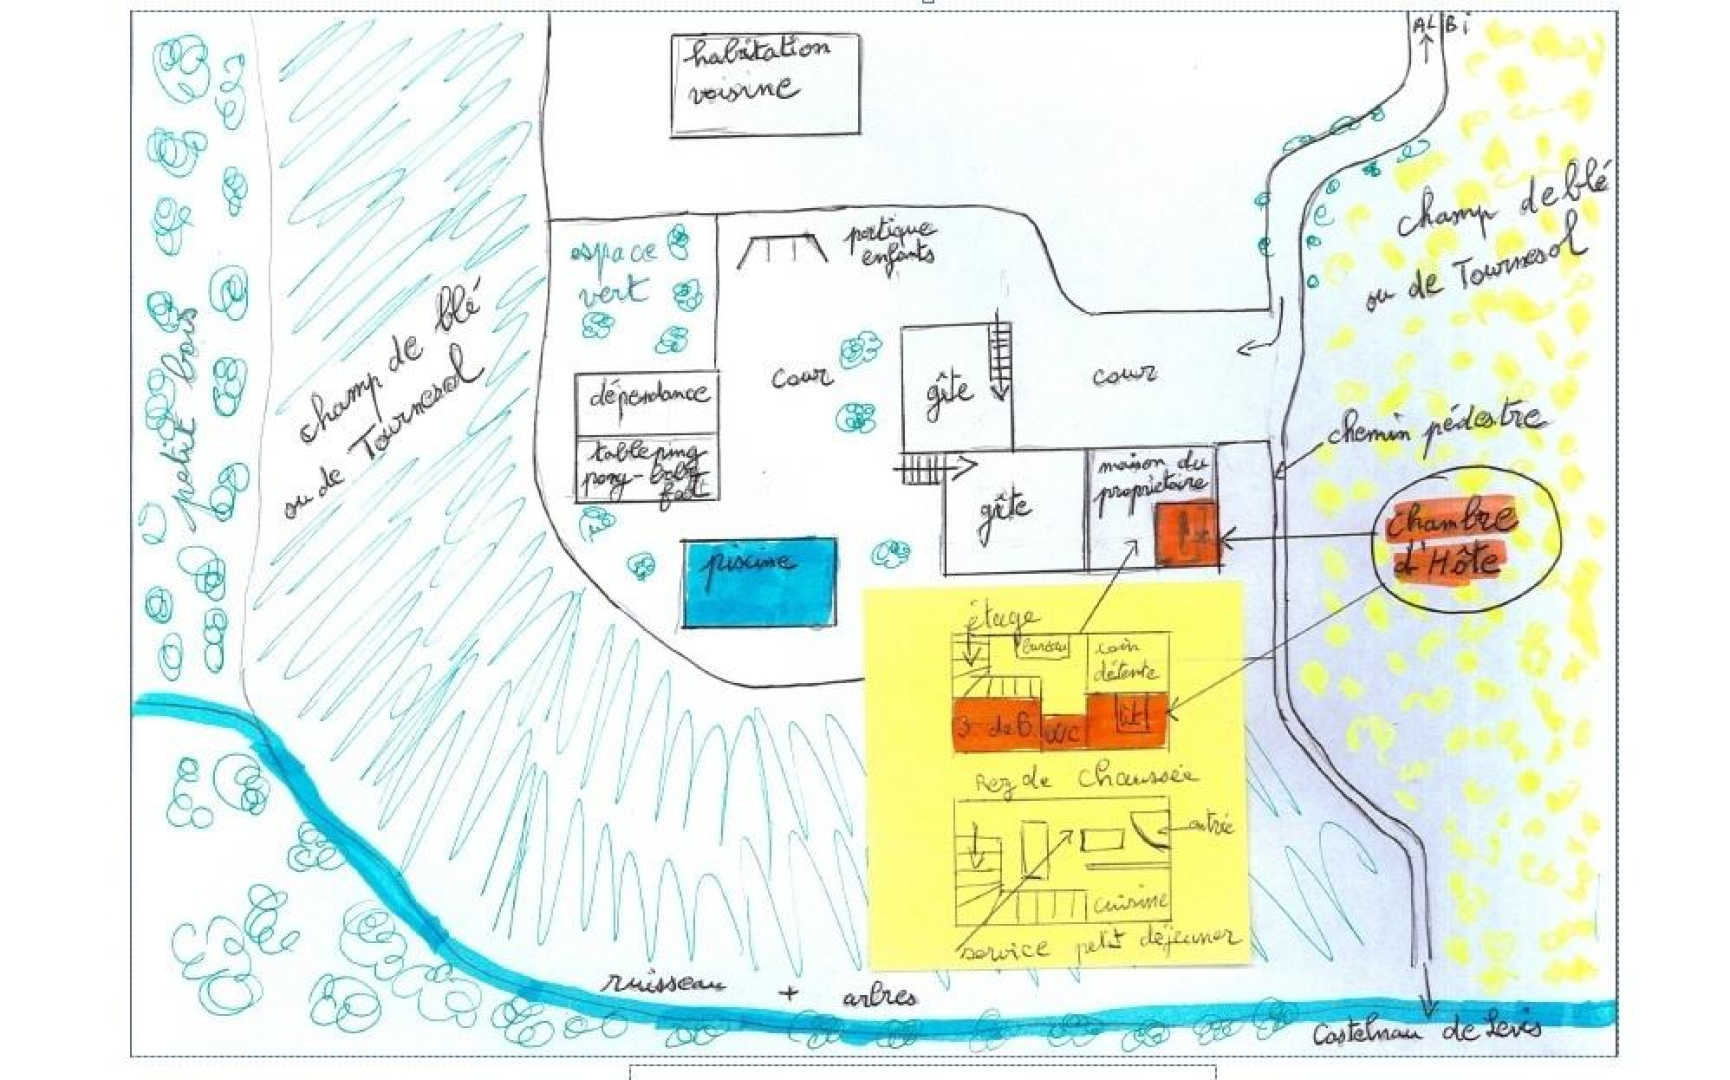 habitation
voisine
AL Bi
champ de blé
ou de Tournesol
espace
vert
portique
enfants
petit bois
champ de blé
ou de
Tournesol
cour
gîte
cour
dépendance
table ping
pong - baby
foot
chemin pédestre
maison du
propriétaire
gîte
chambre
d'Hôte
piscine
étage
bureau
coin
détente
S de B
WC
lit
Rez de Chaussée
entrée
cuisine
service petit déjeuner
ruisseau + arbres
Castelnau de Levis